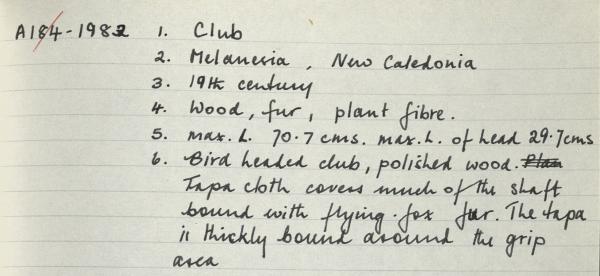 A184-1982 1. Club
2. Melanesia, New Caledonia
3. 19th century
4. Wood, fur, plant fibre.
5. max. L. 70.7 cms. max. L. of head 29.7cms
6. Bird headed club, polished wood. Plan
Tapa cloth covers much of the shaft
bound with flying-fox fur. The tapa
is thickly bound around the grip
area